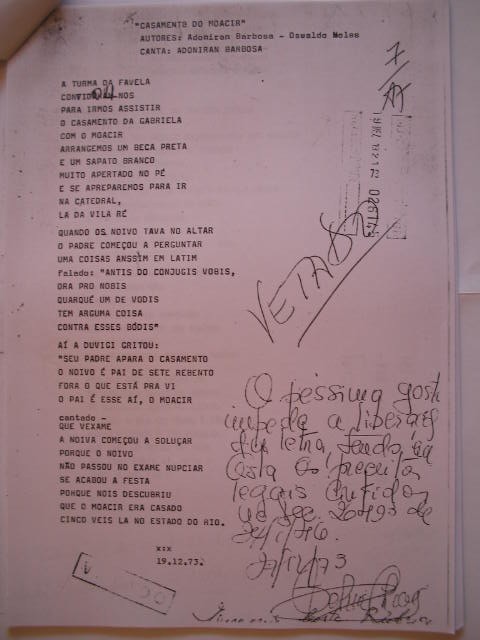 "CASAMENTO DO MOACIR"
AUTORES: Adoniran Barbosa - Oswaldo Moles
CANTA: ADONIRAN BARBOSA
A TURMA DA FAVELA
NOS
PARA IRMOS ASSISTIR
O CASAMENTO DA GABRIELA
COM O MOACIR
ARRANGEMOS UM BECA PRETA
E UM SAPATO BRANCO
MUITO APERTADO NO PÉ
E SE APREPAREMOS PARA IR
NA CATEDRAL,
LA DA VILA RÉ
QUANDO OS NOIVO TAVA NO ALTAR
O PADRE COMEÇOU A PERGUNTAR
UMA COISAS ANSSIM EM LATIM
falado: "ANTIS DO CONJUGIS VOBIS,
ORA PRO NOBIS
QUARQUÉ UM DE VODIS
TEM ARGUMA COISA
CONTRA ESSES BÓDIS"
AÍ A DUVIGI GRITOU:
"SEU PADRE APARA O CASAMENTO
O NOIVO É PAI DE SETE REBENTO
FORA O QUE ESTÁ PRA VI
O PAI É ESSE AÍ, O MOACIR
cantado -
QUE VEXAME
A NOIVA COMEÇOU A SOLUÇAR
PORQUE O NOIVO
NÃO PASSOU NO EXAME NUPCIAR
SE ACABOU A FESTA
PORQUE NOIS DESCUBRIU
QUE O MOACIR ERA CASADO
CINCO VEIS LA NO ESTADO DO RIO.
x:x
19.12.73.
VETADO
O péssimo gosto
impede a liberação
da letra
legais contidos
no Dec. 20493 de
24/1/46.